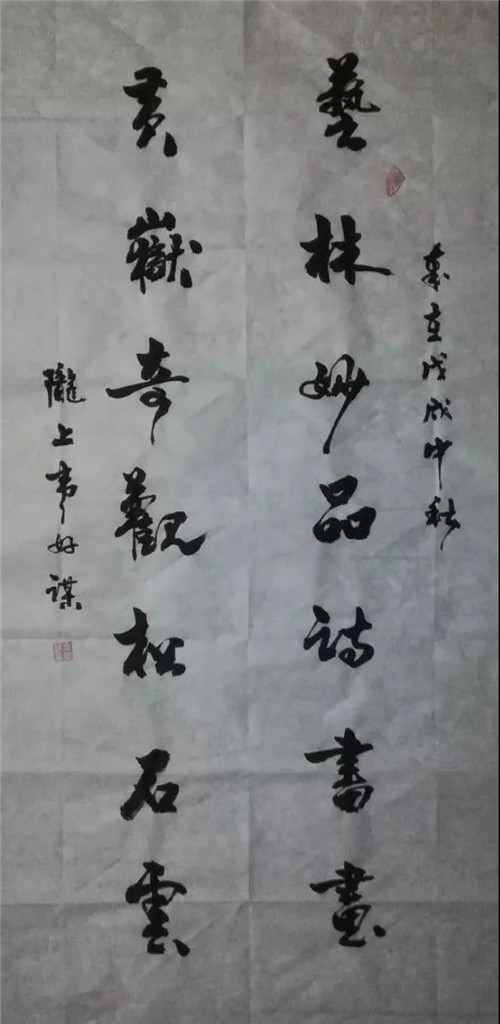 岁在戊戌中秋
藝林妙品詩書畫
黄嶽奇觀松石雲
隴上韦好謀